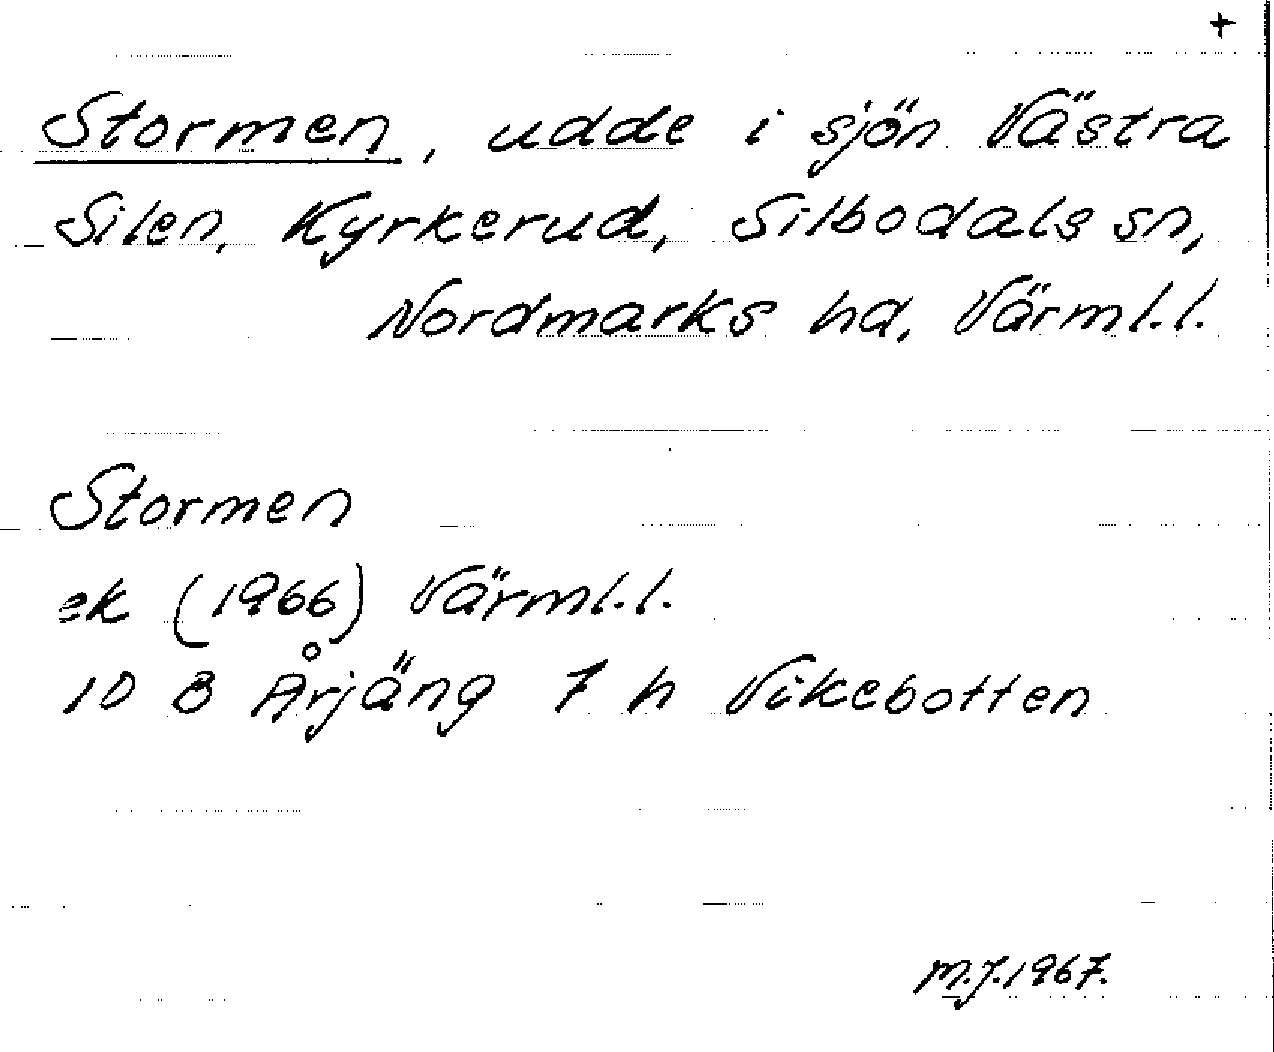 +
Stormen, udde i sjön Västra
Silen, Kyrkerud, Silbodals sn,
Nordmarks hd, Värml.l.
Stormen
ek (1966) Värml.l.
10 B Årjäng 7 h Vikebotten
M.J.1967.